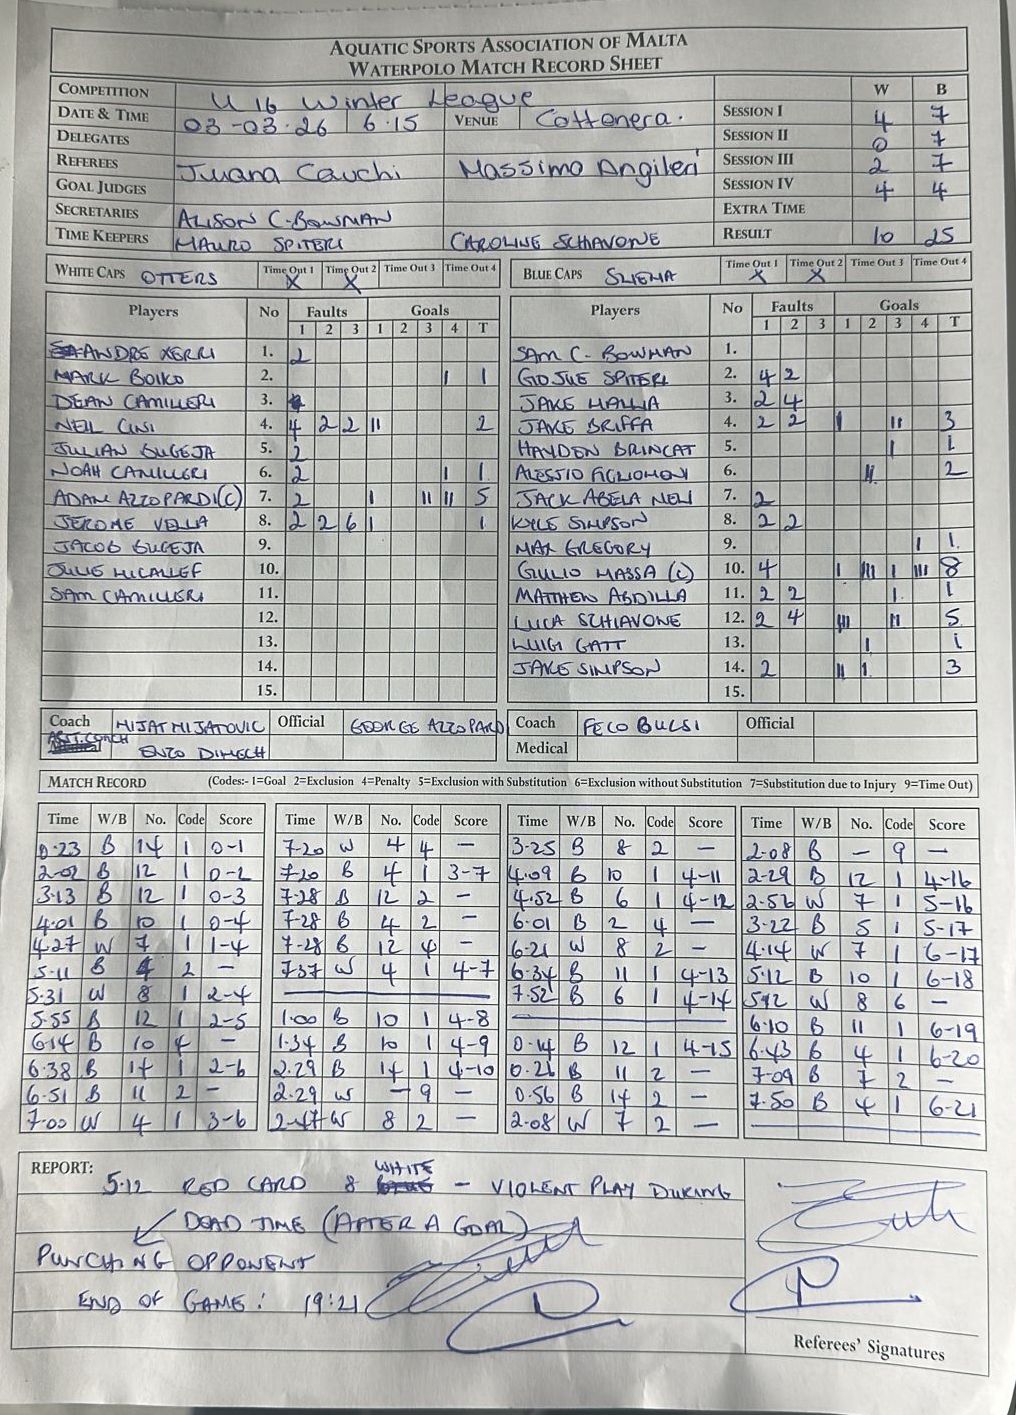 AQUATIC SPORTS ASSOCIATION OF MALTA
WATERPOLO MATCH RECORD SHEET
COMPETITION U 16 Winter League W B
DATE & TIME 03-03-26 6.15 VENUE Cottonera. SESSION I 4 7
DELEGATES SESSION II 0 7
REFEREES Juana Cauchi Massimo Angileri SESSION III 2 7
GOAL JUDGES SESSION IV 4 4
SECRETARIES ALISON C-BOWMAN EXTRA TIME
TIME KEEPERS MAURO SPITERI CAROLINE SCHIAVONE RESULT 10 25
WHITE CAPS OTTERS Time Out 1 X Time Out 2 X Time Out 3 Time Out 4
BLUE CAPS SLIEMA Time Out 1 X Time Out 2 X Time Out 3 Time Out 4
Players No Faults Goals
1 2 3 1 2 3 4 T
ANDRE XERRI 1. 2
MARK BOIKO 2. I 1
DEAN CAMILLERI 3.
NEIL CINI 4. 4 2 2 II 2
JULIAN BUGEJA 5. 2
NOAH CAMILLERI 6. 2 I 1
ADAM AZZOPARDI(C) 7. 2 I II II 5
JEROME VELLA 8. 2 2 6 I 1
JACOB BUGEJA 9.
JULIE MICALLEF 10.
SAM CAMILLERI 11.
12.
13.
14.
15.
Players No Faults Goals
1 2 3 1 2 3 4 T
SAM C-BOWMAN 1.
GIOSUE SPITERI 2. 4 2
JAKE MALLIA 3. 2 4
JAKE BRIFFA 4. 2 2 I II 3
HAYDEN BRINCAT 5. I 1
ALESSIO 6. II 2
JACK ABELA 7. 2
KYLE SIMPSON 8. 2 2
MAX GREGORY 9. I 1
GIULIO MASSA (C) 10. 4 I III I III 8
MATTHEW ABDILLA 11. 2 2 I 1
LUCA SCHIAVONE 12. 2 4 III II 5
LUIGI GATT 13. I 1
JAKE SIMPSON 14. 2 II I 3
15.
Coach MIJAT MIJATOVIC Official GEORGE AZZOPARDI
ASST. COACH ENZO DIMECH
Coach FECO BULSI Official
Medical
MATCH RECORD (Codes:- 1=Goal 2=Exclusion 4=Penalty 5=Exclusion with Substitution 6=Exclusion without Substitution 7=Substitution due to Injury 9=Time Out)
Time W/B No. Code Score
0.23 B 14 1 0-1
2.02 B 12 1 0-2
3.13 B 12 1 0-3
4.01 B 10 1 0-4
4.27 W 7 1 1-4
5.11 B 4 2 -
5.31 W 8 1 2-4
5.55 B 12 1 2-5
6.14 B 10 4 -
6.38 B 14 1 2-6
6.51 B 11 2 -
7.00 W 4 1 3-6
Time W/B No. Code Score
7.20 W 4 4 -
7.20 B 4 1 3-7
7.28 B 12 2 -
7.28 B 4 2 -
7.28 B 12 4 -
7.37 W 4 1 4-7
1.00 B 10 1 4-8
1.34 B 10 1 4-9
2.29 B 14 1 4-10
2.29 W - 9 -
2.47 W 8 2 -
Time W/B No. Code Score
3.25 B 8 2 -
4.09 B 10 1 4-11
4.52 B 6 1 4-12
6.01 B 2 4 -
6.21 W 8 2 -
6.34 B 11 1 4-13
7.52 B 6 1 4-14
0.14 B 12 1 4-15
0.26 B 11 2 -
0.56 B 14 2 -
2.08 W 7 2 -
Time W/B No. Code Score
2.08 B - 9 -
2.29 B 12 1 4-16
2.56 W 7 1 5-16
3.22 B 5 1 5-17
4.14 W 7 1 6-17
5.12 B 10 1 6-18
5.12 W 8 6 -
6.10 B 11 1 6-19
6.43 B 4 1 6-20
7.09 B 7 2 -
7.50 B 4 1 6-21
REPORT:
5.12 RED CARD 8 WHITE - VIOLENT PLAY DURING
DEAD TIME (AFTER A GOAL)
PUNCHING OPPONENT
END OF GAME: 19:21
Referees' Signatures